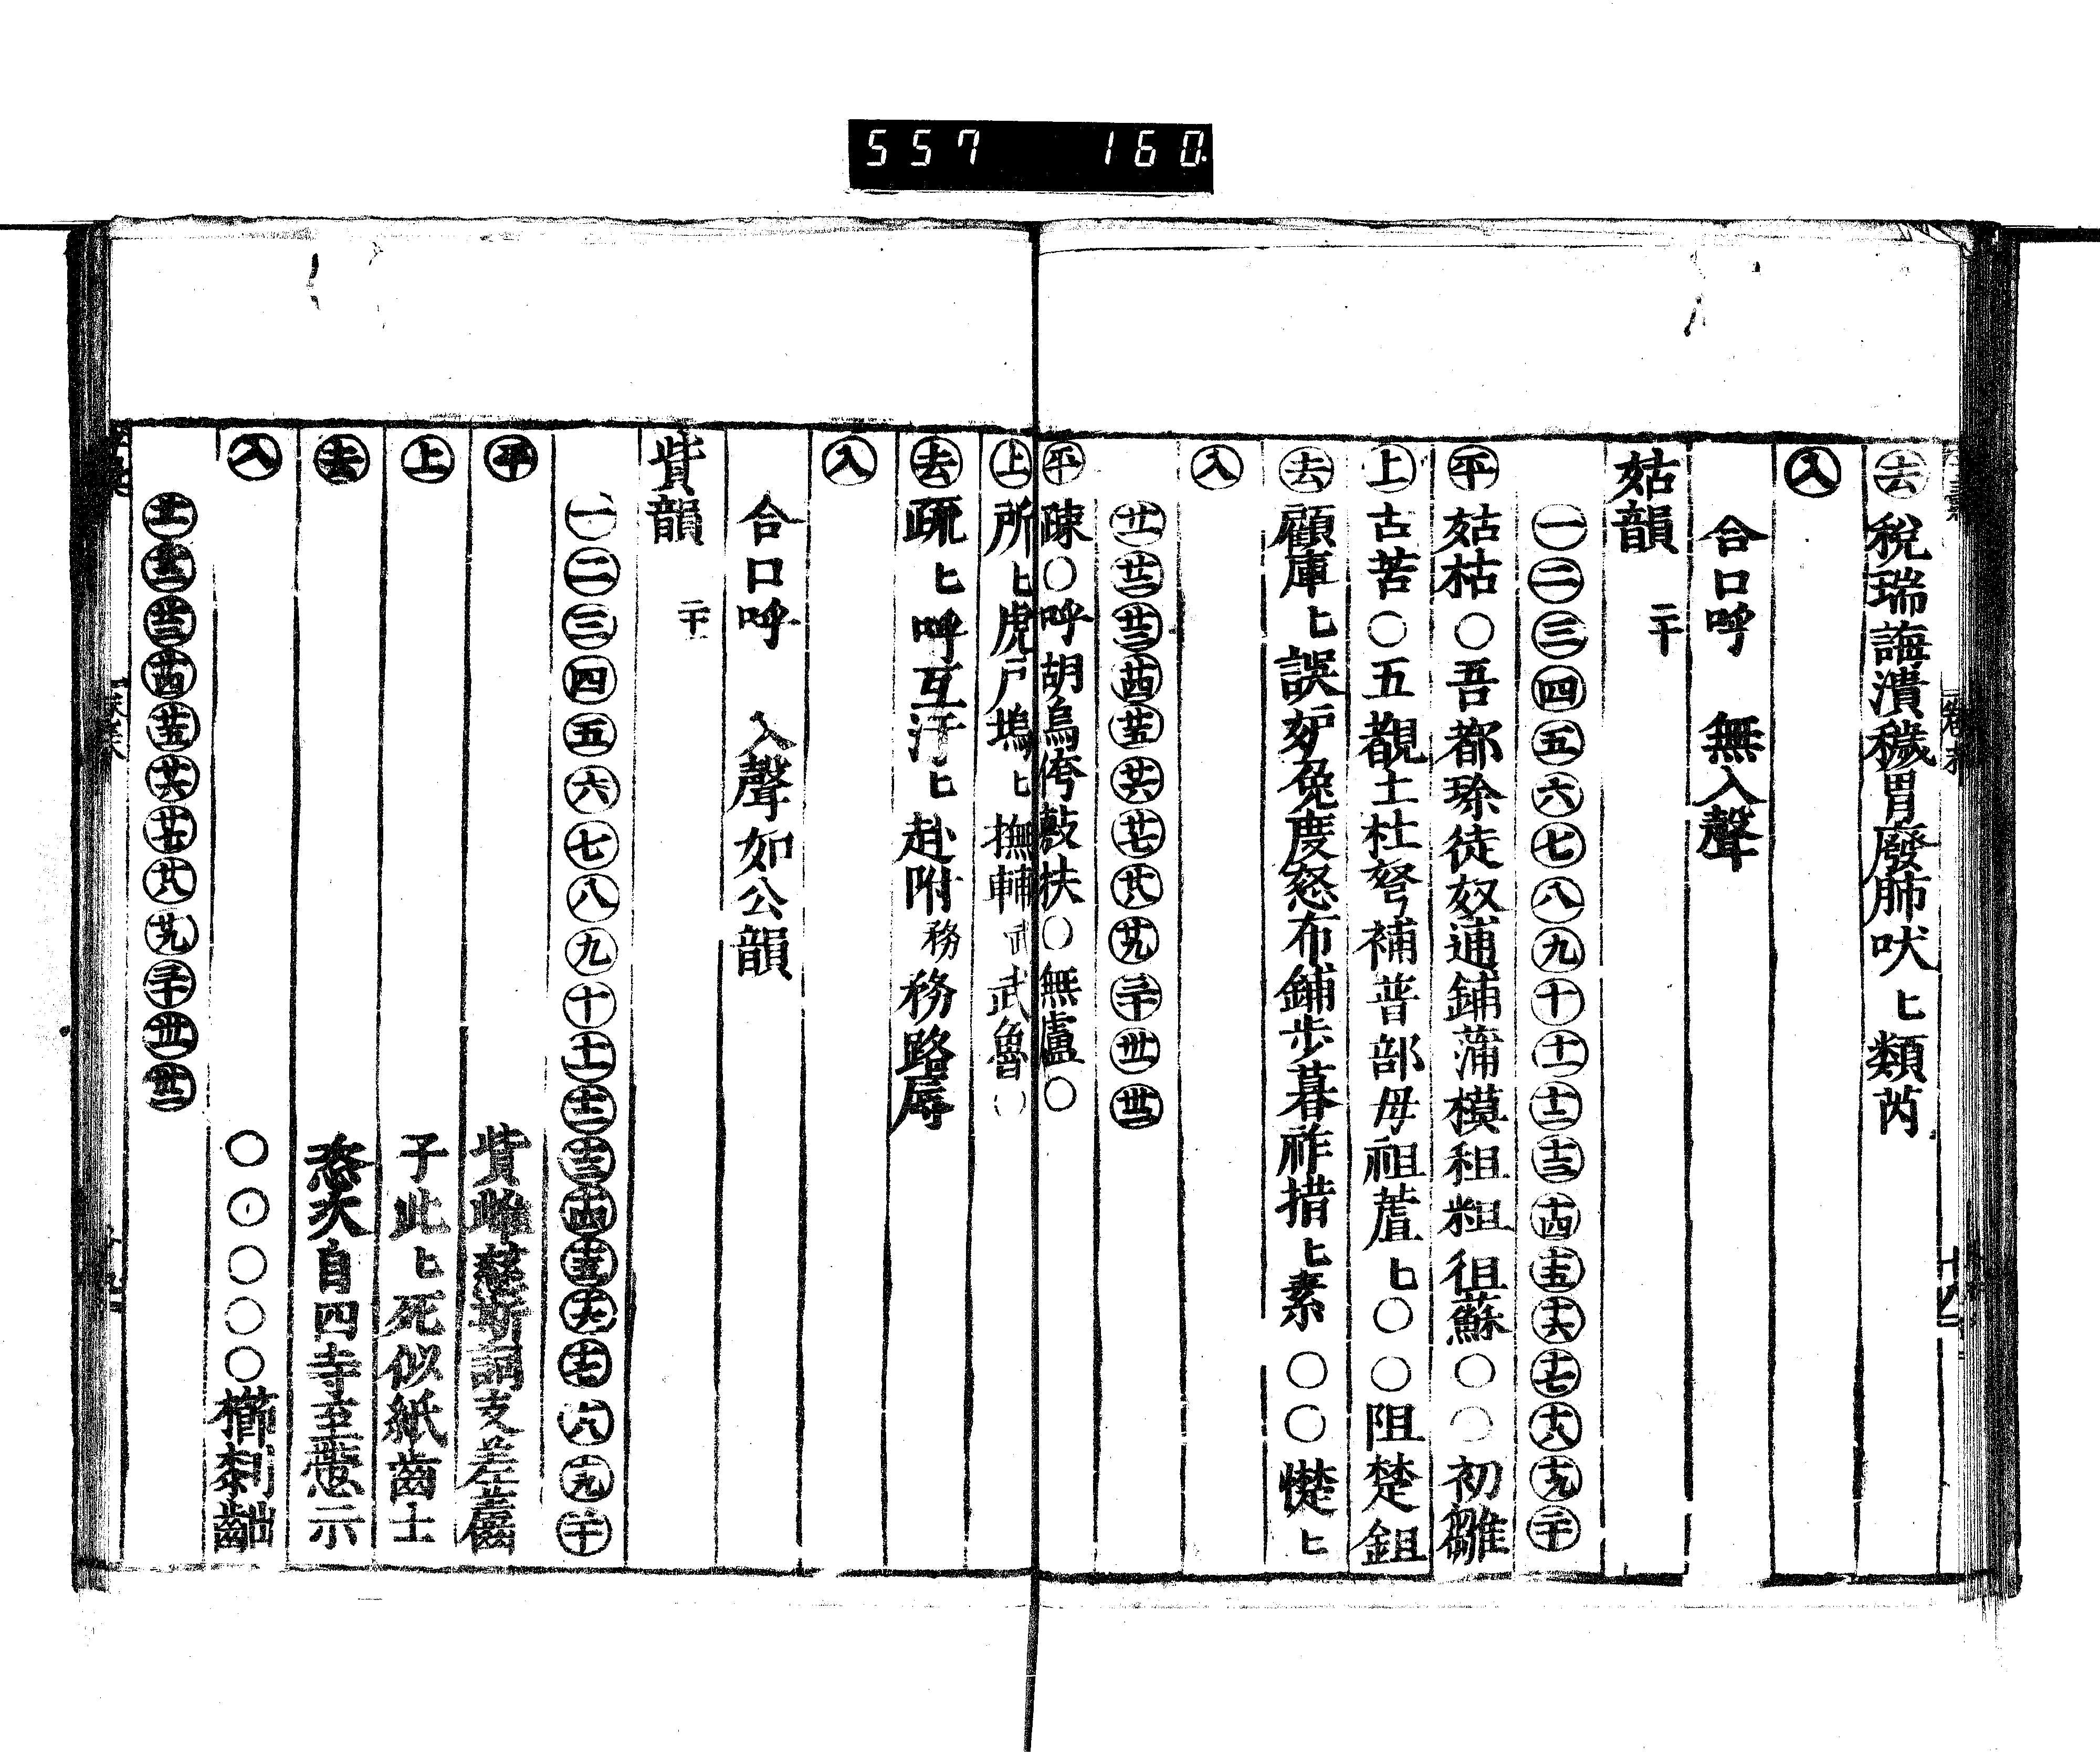 557 160
去 税瑞誨潰穢胃廢肺吠匕類芮
入
合口呼 無入聲
姑韻 二十
一二三四五六七八九十十一十二十三十四十五十六十七十八十九二十
平 姑枯○吾都㻌徒奴逋鋪蒲模租粗徂蘇○○初雛
上 古苦○五覩土杜弩補普部母祖蒩匕○○阻楚鉏
去 顧庫匕誤妒兔度怒布鋪步暮祚措匕素○○憷匕
入
廿一廿二廿三廿四廿五廿六廿七廿八廿九三十卅一卅二
平 踈○呼胡烏侉敷扶○無盧○
上 所匕虎戶塢匕撫輔武武魯○
去 疏匕呼互汙匕赴附務務路辱
入
合口呼 入聲如公韻
貲韻 二十一
一二三四五六七八九十十一十二十三十四十五十六十七十八十九二十
平 貲雌慈斯詞支差齹
上 子此匕死似紙齒士
去 恣㳄自四寺至㦻示
入 ○○○○○櫛䵝齜
廿一廿二廿三廿四廿五廿六廿七廿八廿九三十卅一卅二